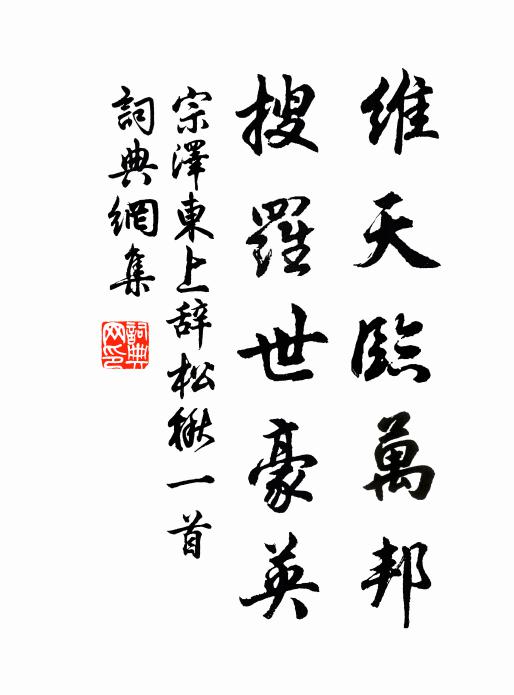 維天臨萬邦
搜羅世豪英
宗澤東上辞松楸一首
詞典網集
詞典网印